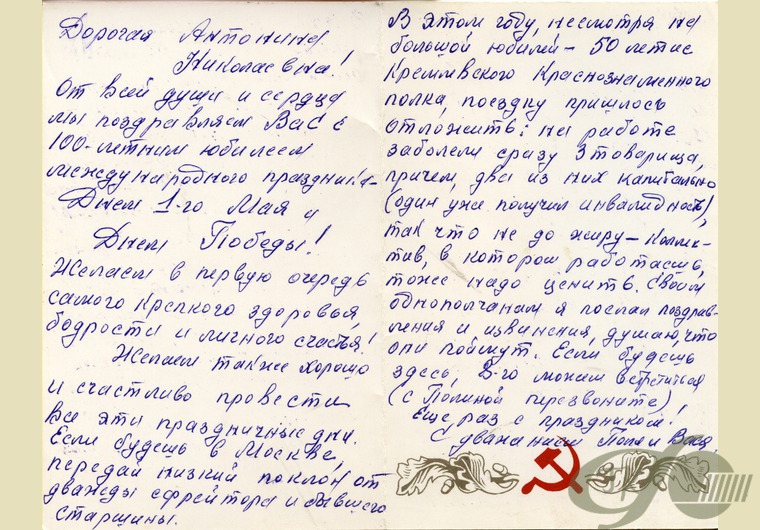 Дорогая Антонина
Николаевна!
От всей души и сердца
мы поздравляем Вас с
100-летним юбилеем
международного праздника-
Днем 1-го Мая и
Днем Победы!
Желаем в первую очередь
самого крепкого здоровья,
бодрости и личного счастья!
Желаем также хорошо
и счастливо провести
все эти праздничные дни.
Если будешь в Москве,
передай низкий поклон от
дважды ефрейтора и бывшего
старшины.
В этом году, несмотря на
большой юбилей - 50 летие
Кремлевского Краснознаменного
полка, поездку пришлось
отложить: на работе
заболели сразу 3 товарища,
причем, два из них капитально
(один уже получил инвалидность),
так что не до жиру - коллек-
тив, в котором работаешь,
тоже надо ценить. Своим
однополчанам я послал поздрав-
ления и извинения, думаю, что
они поймут. Если будешь
здесь, 8-го можем встретиться
(с Полиной перезвоните)!
Еще раз с праздником!
С уважением Поля и Вася.